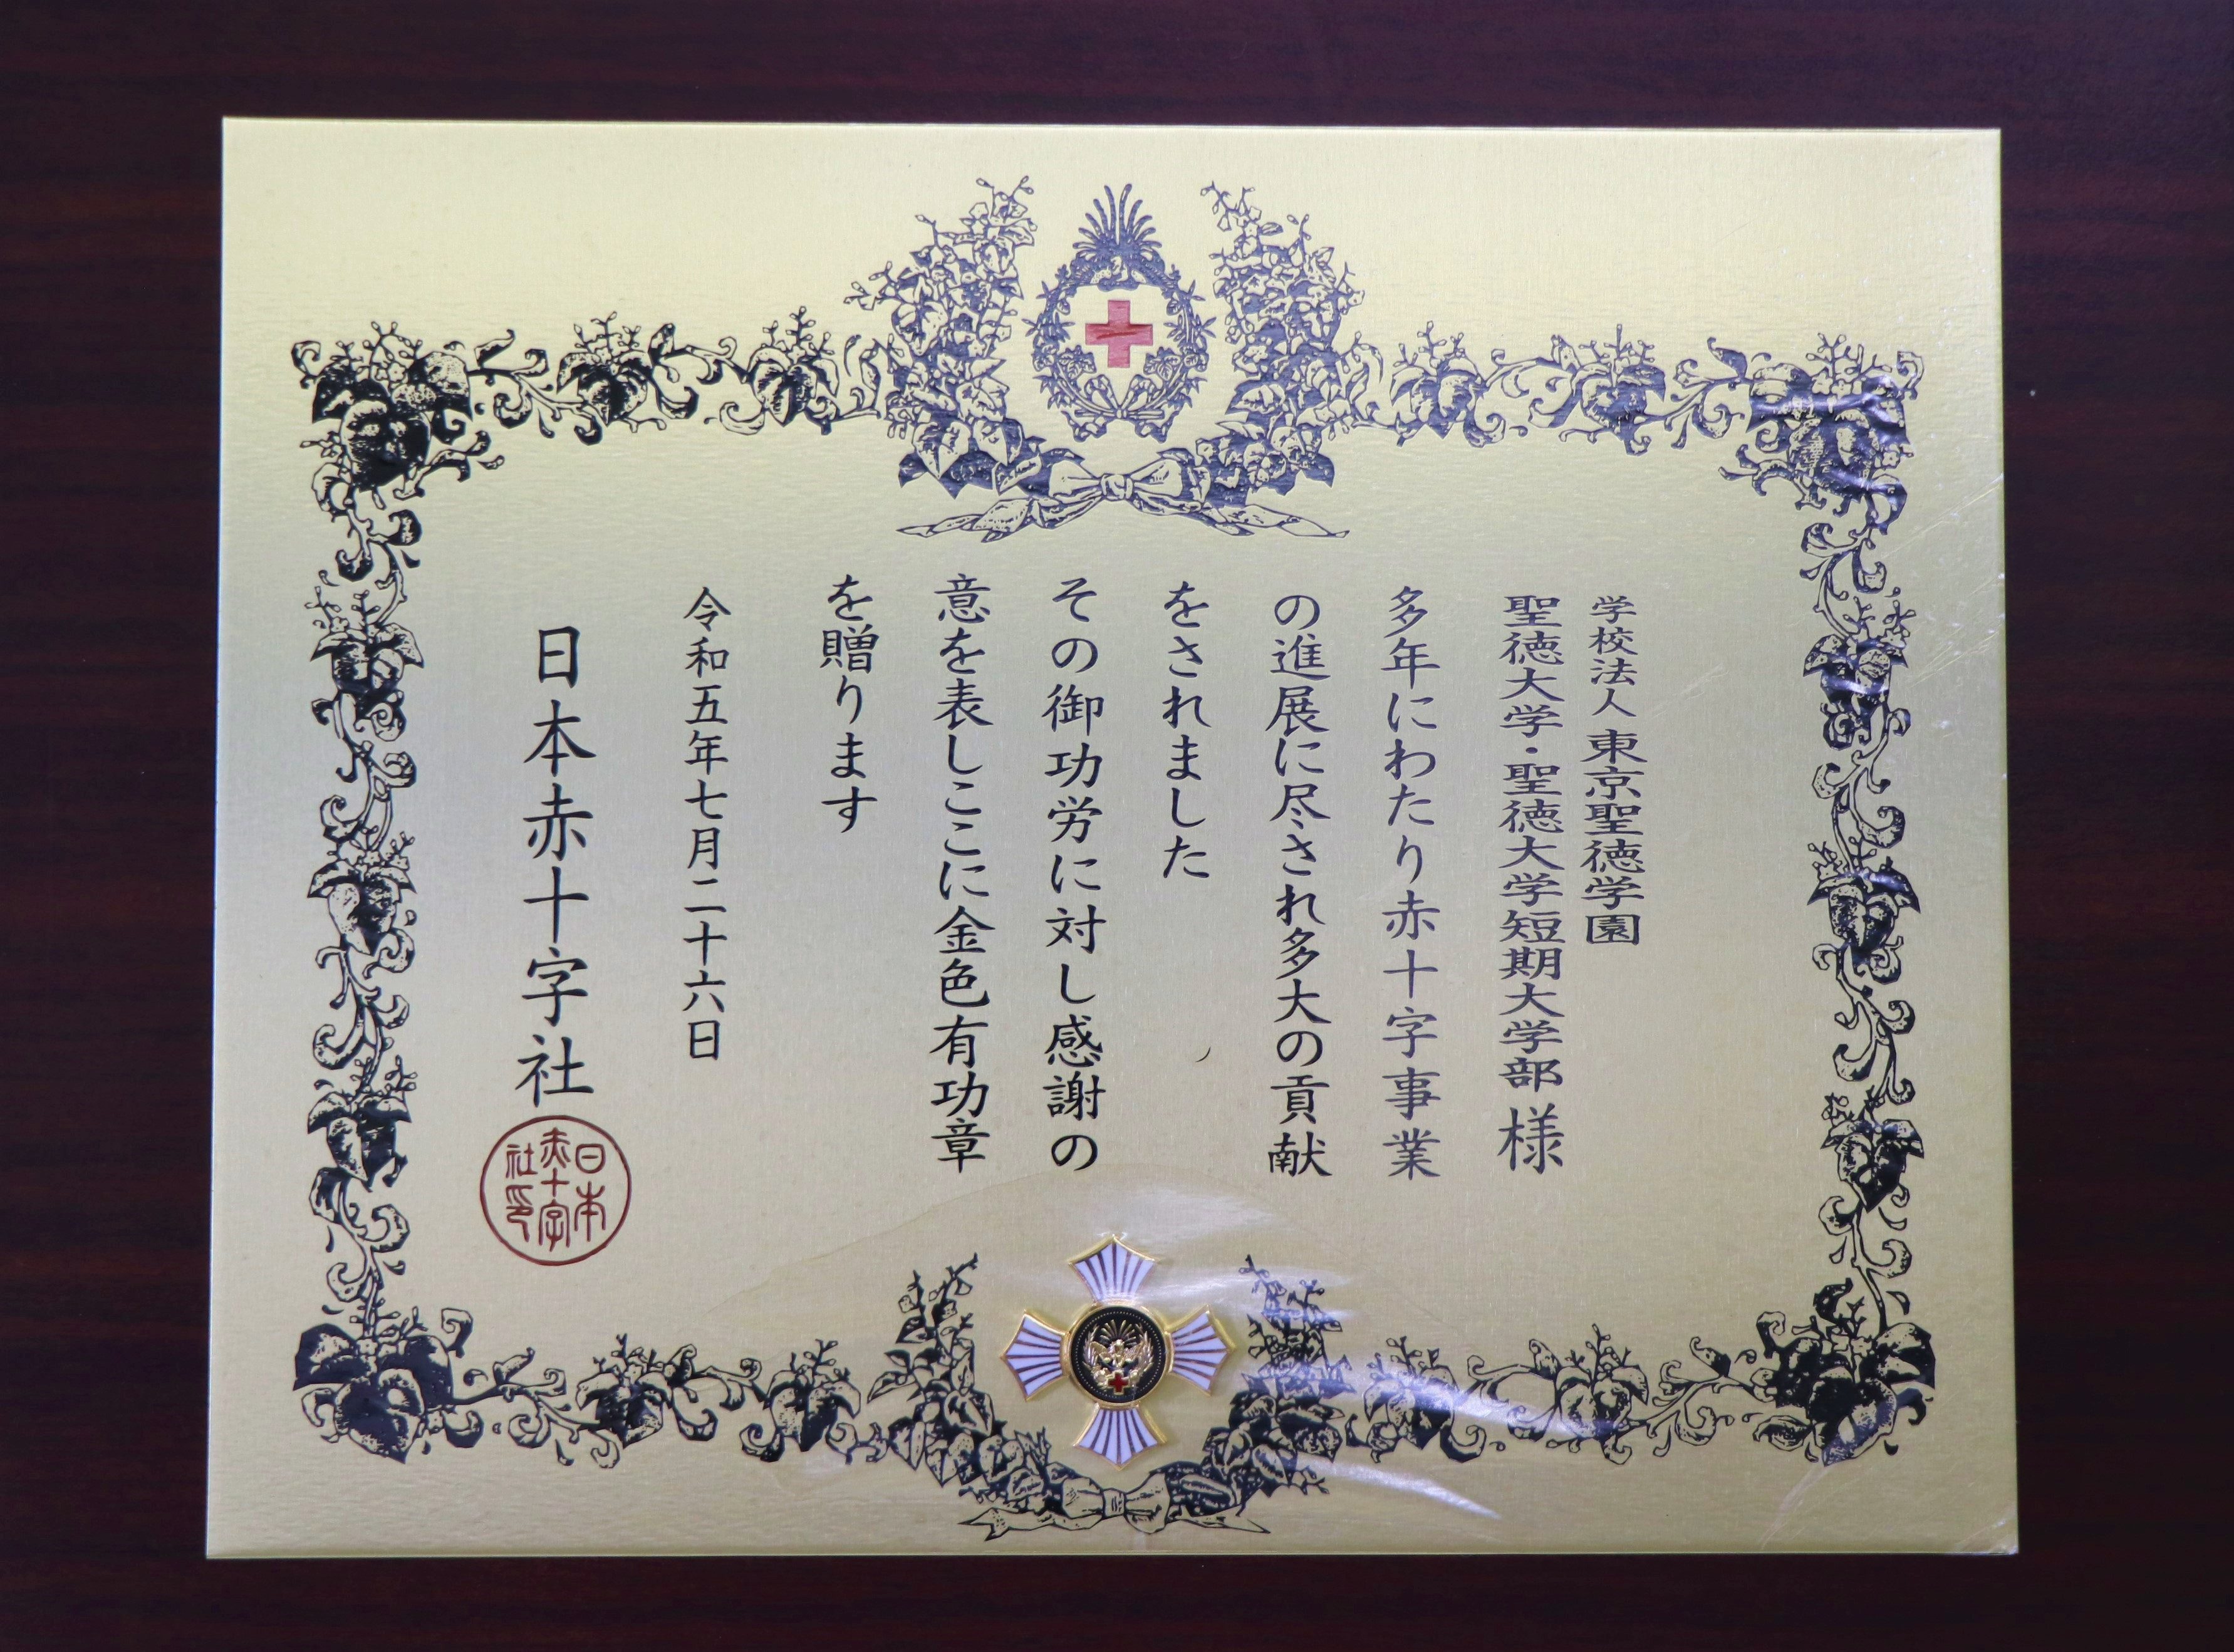 学校法人 東京聖徳学園
聖徳大学・聖徳大学短期大学部 様
多年にわたり赤十字事業
の進展に尽され多大の貢献
をされました
その御功労に対し感謝の
意を表しここに金色有功章
を贈ります
令和五年七月二十六日
日本赤十字社
日本
赤十字
社印